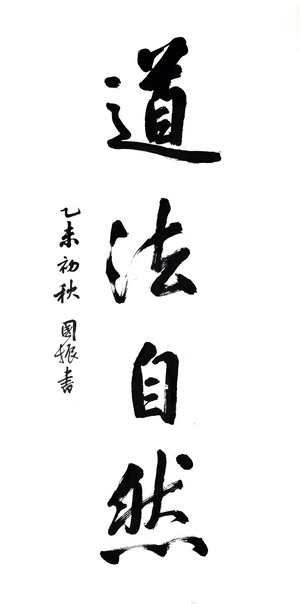 道法自然
乙未初秋 國振書